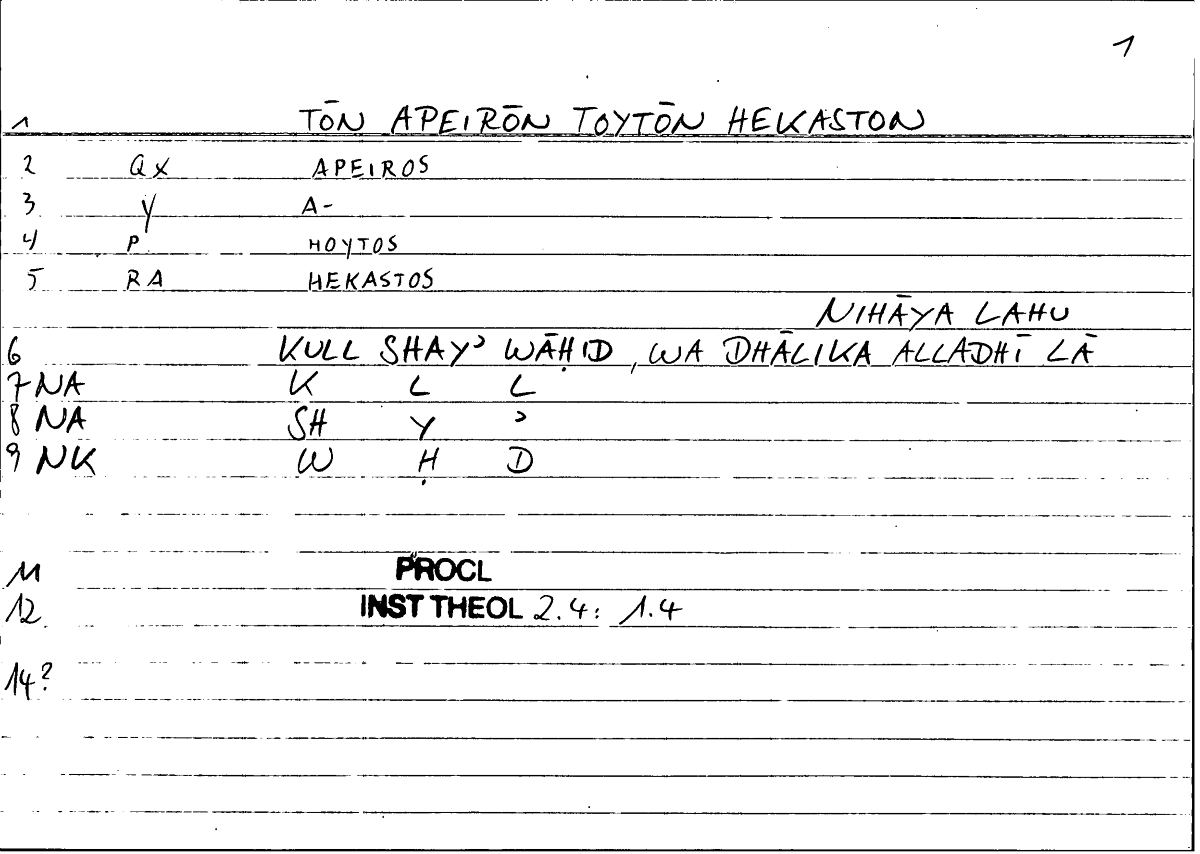 1
1 TŌN APEIRŌN TOYTŌN HEKASTON
2 QX APEIROS
3 Y A-
4 P HOYTOS
5 RA HEKASTOS
NIHĀYA LAHU
6 KULL SHAYʾ WĀḤID, WA DHĀLIKA ALLADHĪ LĀ
7 NA K L L
8 NA SH Y ʾ
9 NK W Ḥ D
11 PROCL
12 INST THEOL 2.4: 1.4
14?